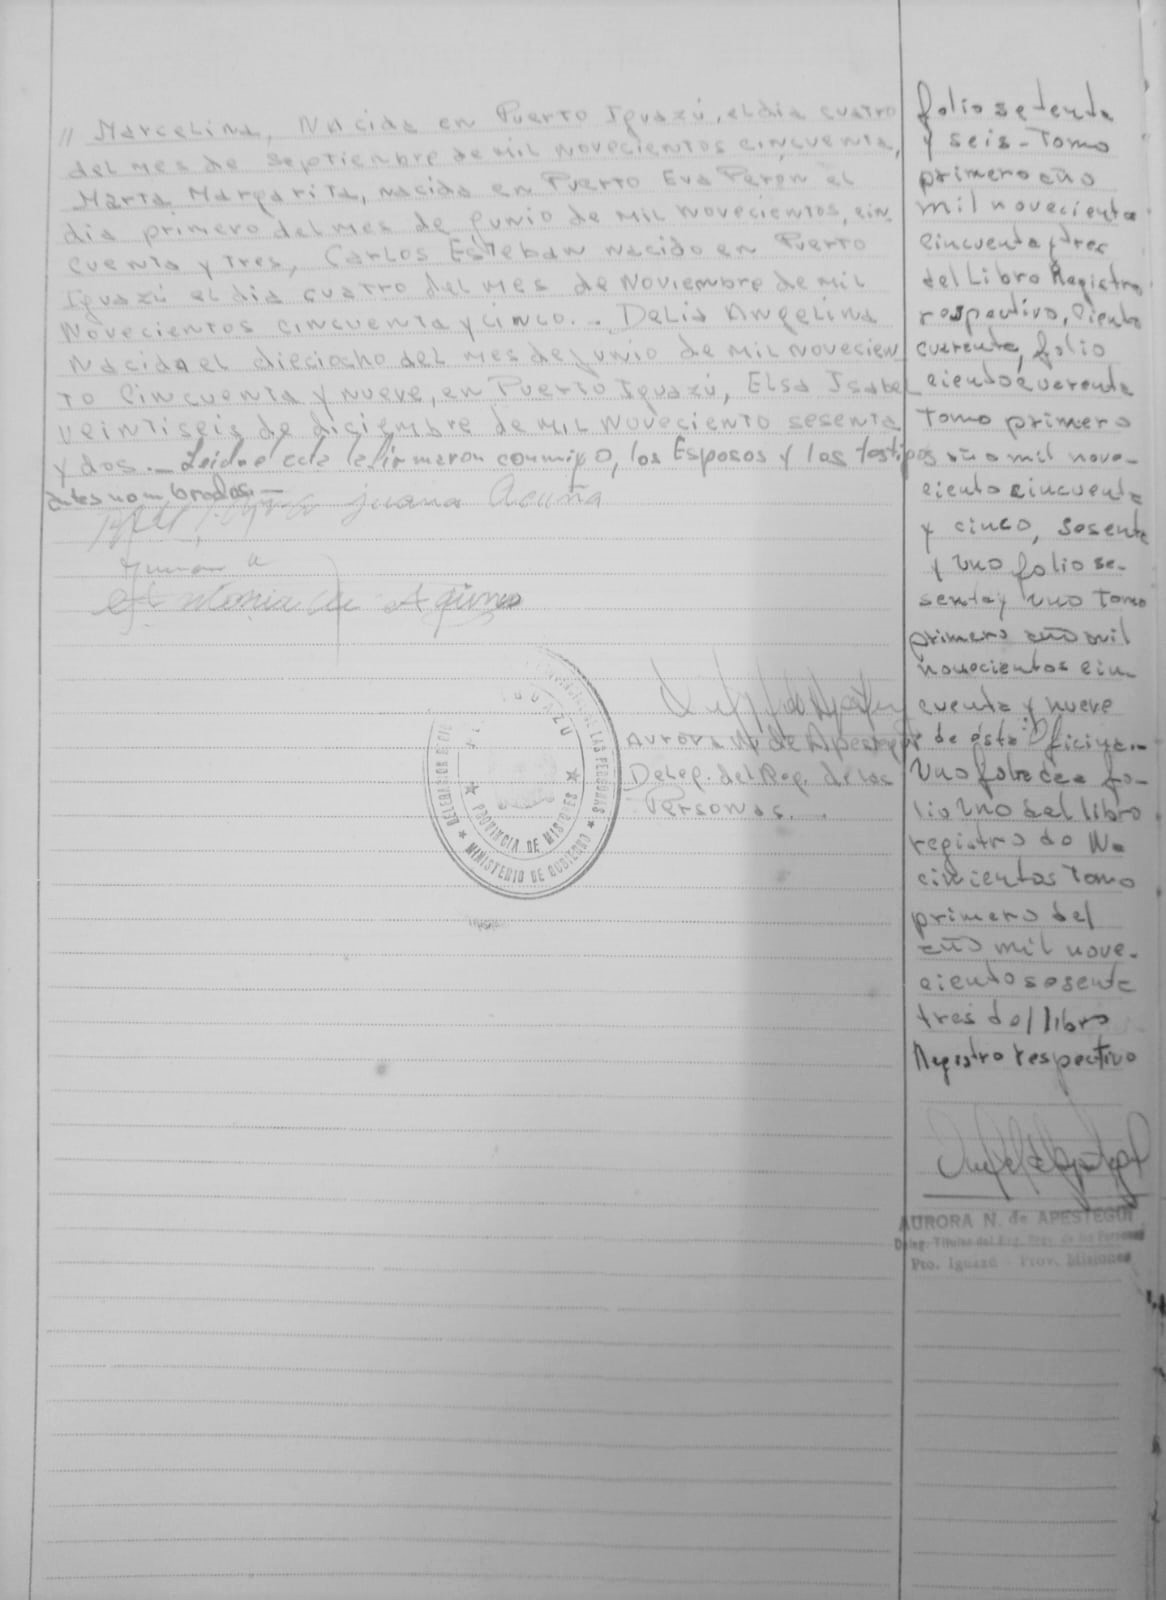 // Marcelina, Nacida en Puerto Iguazú, el dia cuatro
del mes de septiembre de mil novecientos cincuenta,
Marta Margarita, nacida en Puerto Eva Peron el
dia primero del mes de Junio de mil novecientos, cin
cuenta y tres, Carlos Esteban nacido en Puerto
Iguazú el dia cuatro del mes de Noviembre de mil
Novecientos cincuenta y cinco.. Delia Angelina
Nacida el dieciocho del mes de junio de mil novecien
to Cincuenta y nueve, en Puerto Iguazú, Elsa Isabel
veintiseis de diciembre de mil noveciento sesenta
y dos._ Leida el acta le firmaron conmigo, los Esposos y los testigos
antes nombrados._
juana Acuña
Antonia de Aquino
Aurora N. de Apestegui
Deleg. del Reg. de las
Personas. .
IGUAZU
DE LAS PERSONAS
PROVINCIA DE MISIONES
MINISTERIO DE GOBIERNO
folio setenta
y seis - Tomo
primero año
mil noveciento
cincuenta y tres
del Libro Registro
respectivo, Ciento
cuarenta, folio
ciento cuarenta
Tomo primero
año mil nove-
ciento cincuenta
y cinco, sesenta
y uno folio se-
senta y uno Tomo
primero año mil
novecientos cin-
cuenta y nueve
de ésta Oficina.-
Uno fo-
lio uno del libro
registro de Na
cimientos Tomo
primero del
año mil nove-
ciento sesenta
tres del libro
Registro respectivo
AURORA N. de APESTEGUI
Deleg. Titular del Reg. Prov. de las Personas
Pto. Iguazú - Prov. Misiones